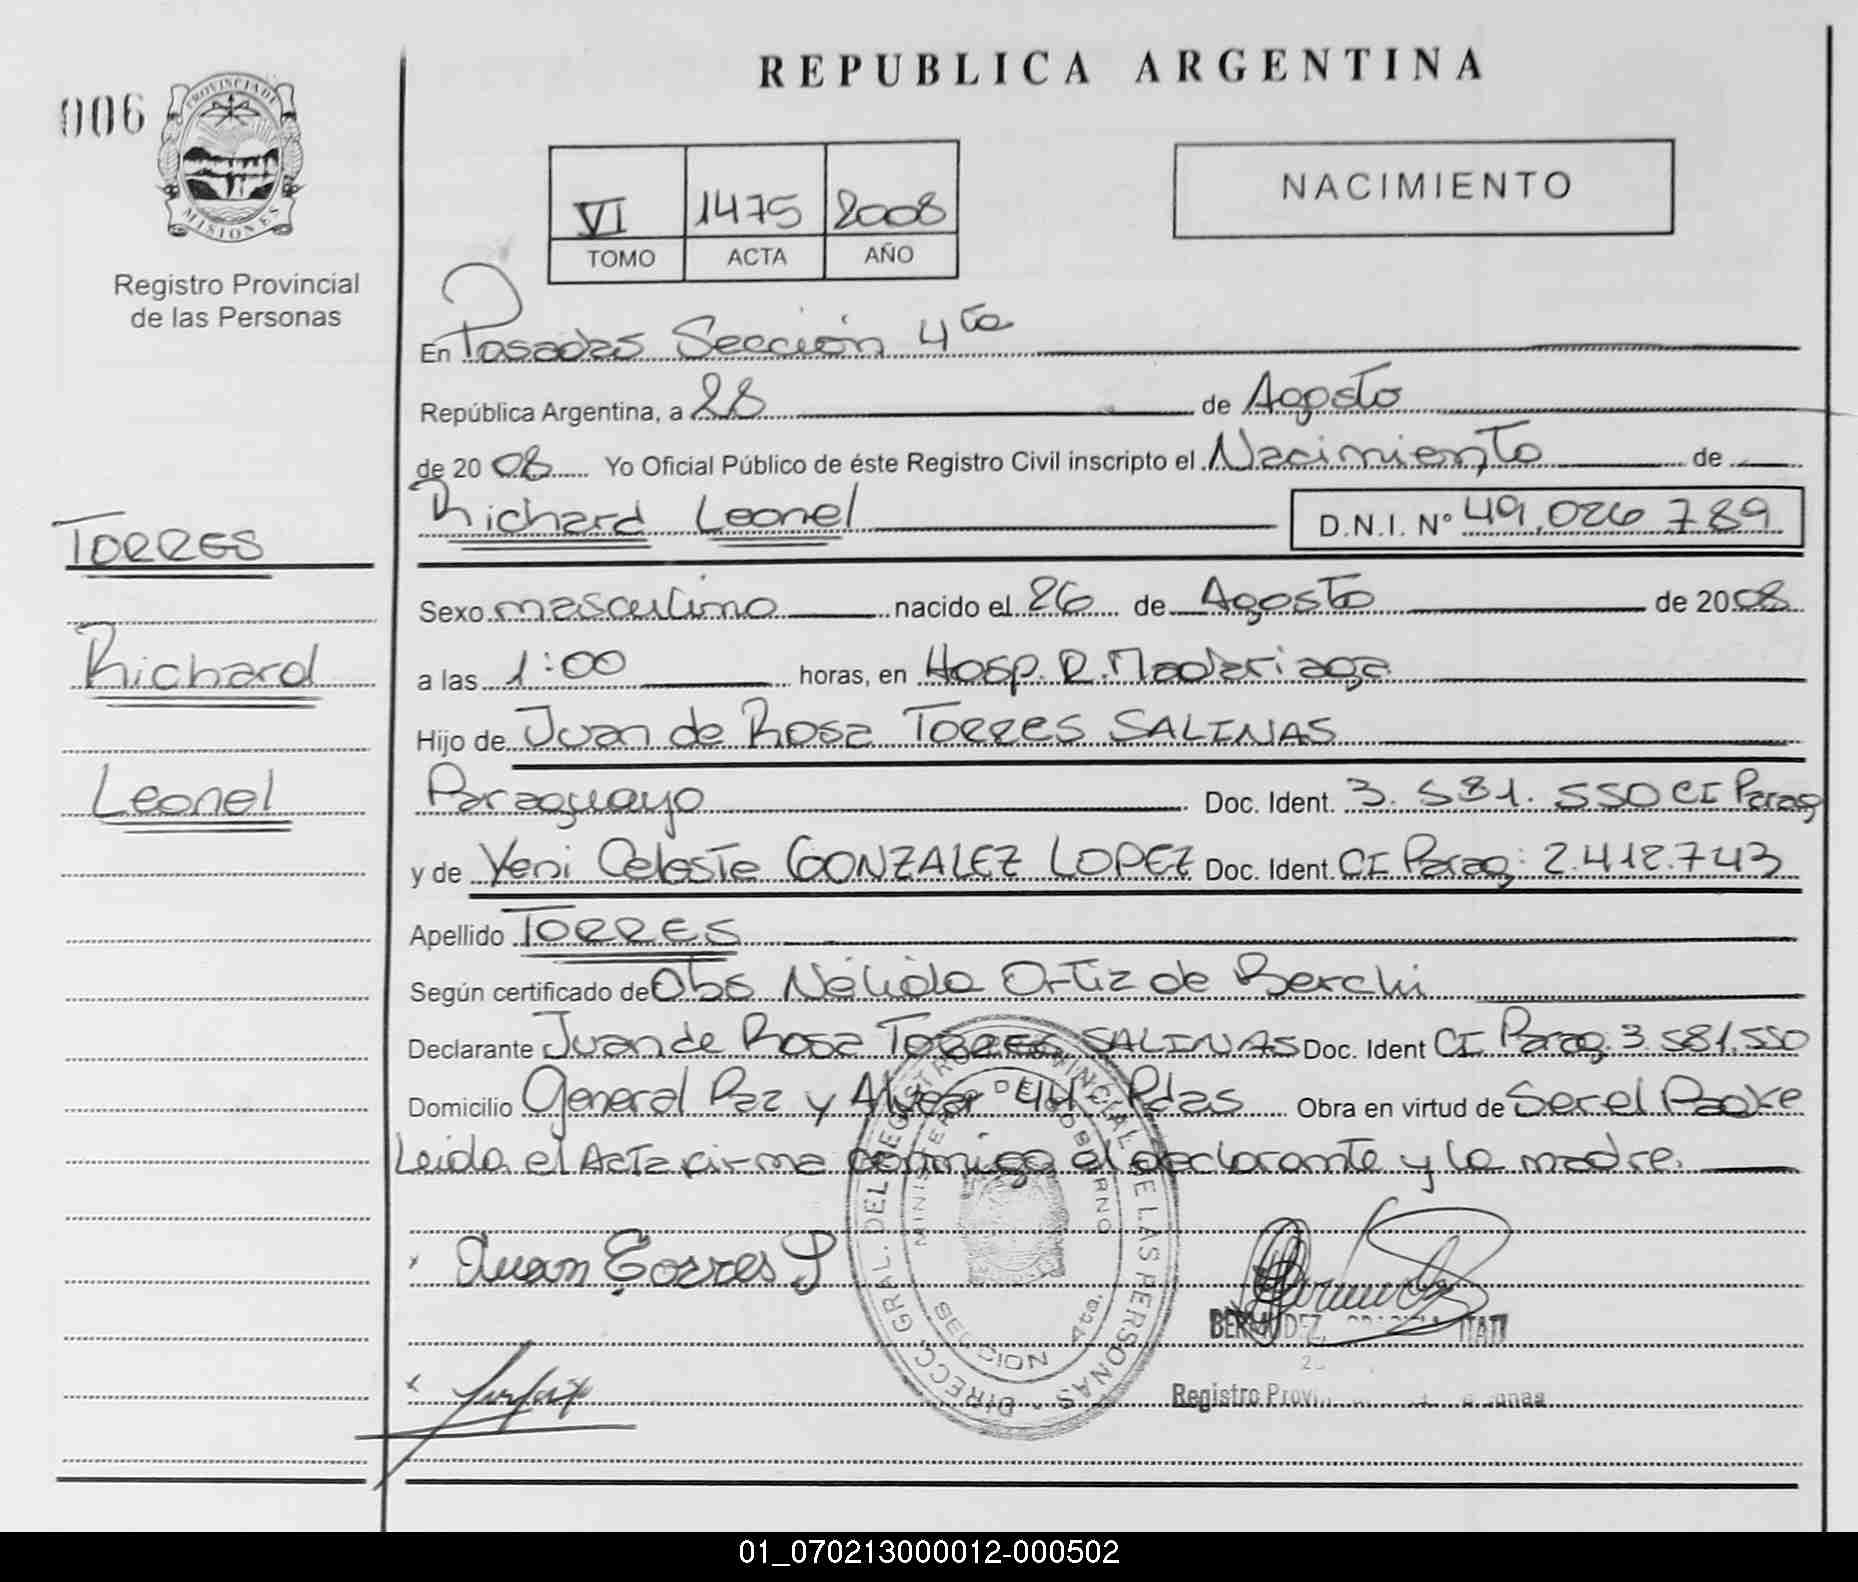 REPUBLICA ARGENTINA
006
PROVINCIA DE
MISIONES
Registro Provincial
de las Personas
VI 1475 2008
TOMO ACTA AÑO
NACIMIENTO
En Posadas Sección 4ta
República Argentina, a 28 de Agosto
de 2008 Yo Oficial Público de éste Registro Civil inscripto el Nacimiento de
Richard Leonel D.N.I. Nº 49.026.789
TORRES
Richard
Leonel
Sexo masculino nacido el 26 de Agosto de 2008
a las 1:00 horas, en Hosp. R. Madariaga
Hijo de Juan de Rosa TORRES SALINAS
Paraguayo Doc. Ident. 3.581.550 CI Parag
y de Yeni Celeste GONZALEZ LOPEZ Doc. Ident. CI Parag: 2.412.743
Apellido TORRES
Según certificado de Obs Nélida Ortiz de Berchi
Declarante Juan de Rosa TORRES SALINAS Doc. Ident CI Parag. 3.581.550
Domicilio General Paz y Alvear 44 Pdas Obra en virtud de Ser el Padre
Leida el Acta firma conmigo el declarante y la madre.
Juan Torres S
DIRECC. GRAL. DEL REGISTRO PROVINCIAL DE LAS PERSONAS
MINISTERIO DE GOBIERNO
SECCION 4ta.
BERMUDEZ, ITATI
Registro
01_070213000012-000502